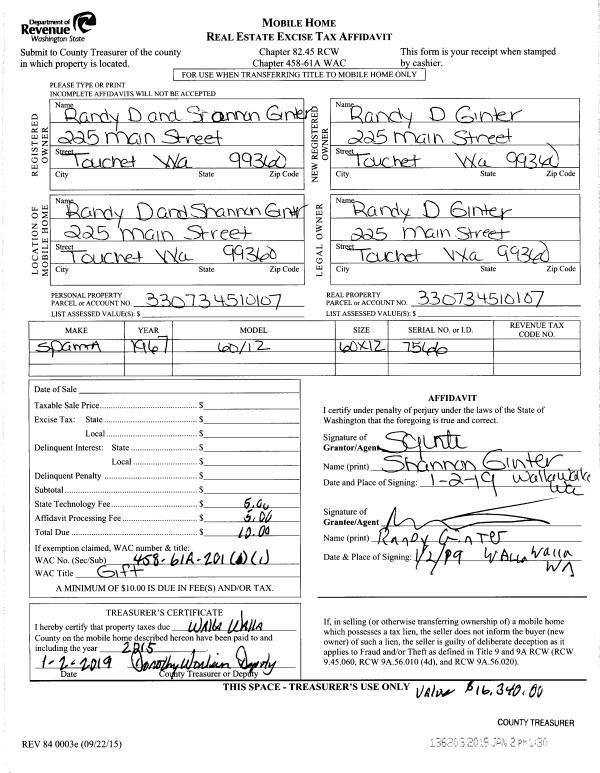 Department of
Revenue
Washington State
MOBILE HOME
REAL ESTATE EXCISE TAX AFFIDAVIT
Submit to County Treasurer of the county
in which property is located.
Chapter 82.45 RCW
Chapter 458-61A WAC
This form is your receipt when stamped
by cashier.
FOR USE WHEN TRANSFERRING TITLE TO MOBILE HOME ONLY
PLEASE TYPE OR PRINT
INCOMPLETE AFFIDAVITS WILL NOT BE ACCEPTED
REGISTERED OWNER
Name Randy D and Shannon Ginter
225 Main Street
Street
Touchet Wa 99360
City State Zip Code
NEW REGISTERED OWNER
Name Randy D Ginter
225 Main Street
Street
Touchet Wa 99360
City State Zip Code
LOCATION OF MOBILE HOME
Name Randy D and Shannon Ginter
225 Main Street
Street
Touchet Wa 99360
City State Zip Code
LEGAL OWNER
Name Randy D Ginter
225 Main Street
Street
Touchet Wa 99360
City State Zip Code
PERSONAL PROPERTY
PARCEL or ACCOUNT NO. 330734510107
LIST ASSESSED VALUE(S): $
REAL PROPERTY
PARCEL or ACCOUNT NO. 330734510107
LIST ASSESSED VALUE(S): $
MAKE YEAR MODEL SIZE SERIAL NO. or I.D. REVENUE TAX CODE NO.
1967 60/12 60x12 7566
Date of Sale
Taxable Sale Price $
Excise Tax: State $
Local $
Delinquent Interest: State $
Local $
Delinquent Penalty $
Subtotal $
State Technology Fee $ 5.00
Affidavit Processing Fee $ 5.00
Total Due $ 10.00
If exemption claimed, WAC number & title:
WAC No. (Sec/Sub) 458-61A-201
WAC Title Gift
A MINIMUM OF $10.00 IS DUE IN FEE(S) AND/OR TAX.
AFFIDAVIT
I certify under penalty of perjury under the laws of the State of
Washington that the foregoing is true and correct.
Signature of
Grantor/Agent
Name (print) Shannon Ginter
Date and Place of Signing: 1-2-19 Walla Walla
Wa
Signature of
Grantee/Agent
Name (print) Randy Ginter
Date & Place of Signing: Walla Walla
WA
TREASURER'S CERTIFICATE
I hereby certify that property taxes due Walla Walla
County on the mobile home described hereon have been paid to and
including the year 2015
1-2-2019 Dorothy Deputy
Date County Treasurer or Deputy
If, in selling (or otherwise transferring ownership of) a mobile home
which possesses a tax lien, the seller does not inform the buyer (new
owner) of such a lien, the seller is guilty of deliberate deception as it
applies to Fraud and/or Theft as defined in Title 9 and 9A RCW (RCW
9.45.060, RCW 9A.56.010 (4d), and RCW 9A.56.020).
THIS SPACE - TREASURER'S USE ONLY Value $16,340.00
COUNTY TREASURER
REV 84 0003e (09/22/15)
136203 2019 JAN 2 PM 1:30